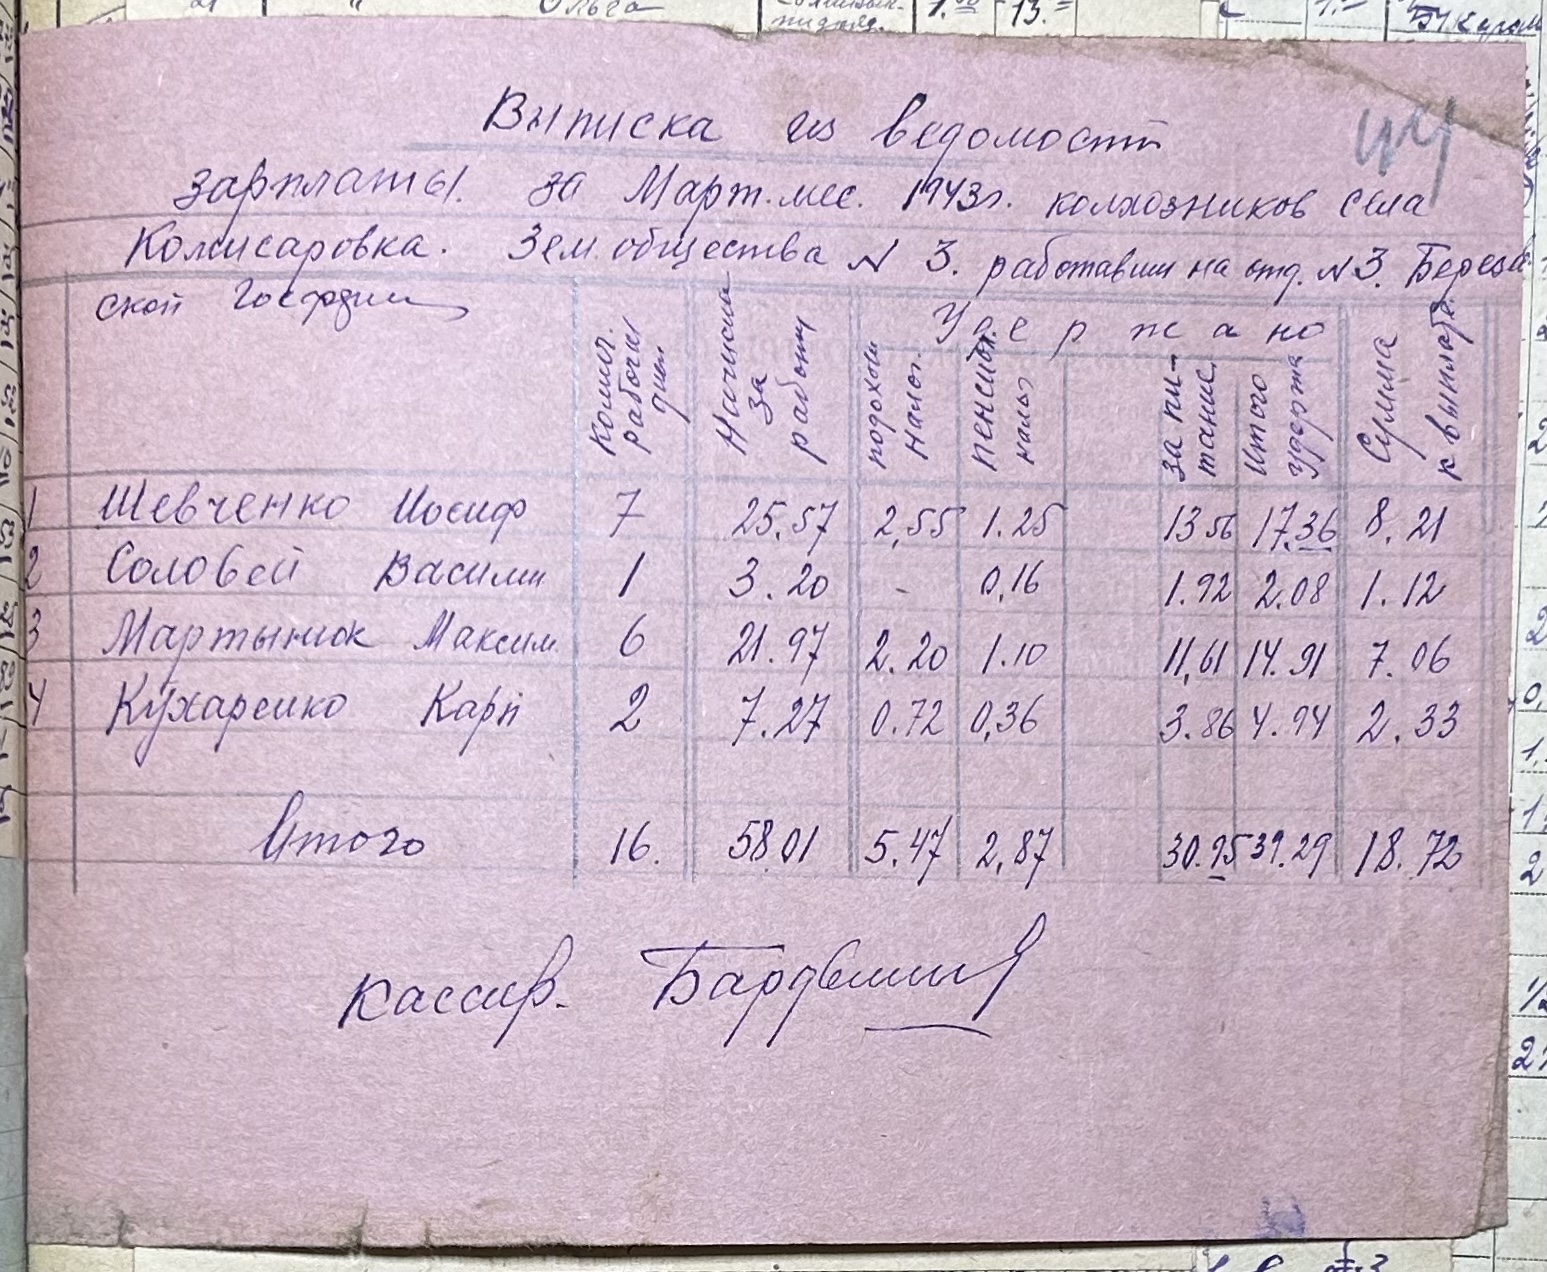 44
Выписка из ведомости
зарплаты. за Март. мес. 1943г. колхозников села
Комисаровка. Зем. общества N 3. работавши на отд. N3. Березов
ской Госфермы
Колич. рабочих дней
Начислен за работу
Удержано
подоходн налог.
пенсион. налог
за пи-тание.
Итого удержа
Сумма к выплате.
1 Шевченко Иосиф 7 25.57 2,55 1.25 13 56 17.36 8.21
2 Соловей Василий 1 3.20 - 0,16 1.92 2.08 1.12
3 Мартынюк Максим. 6 21.97 2.20 1.10 11,61 14.91 7.06
4 Кухаренко Карп 2 7.27 0.72 0,36 3.86 4.94 2.33
Итого 16. 58.01 5.47 2,87 30.95 39.29 18.72
кассир.